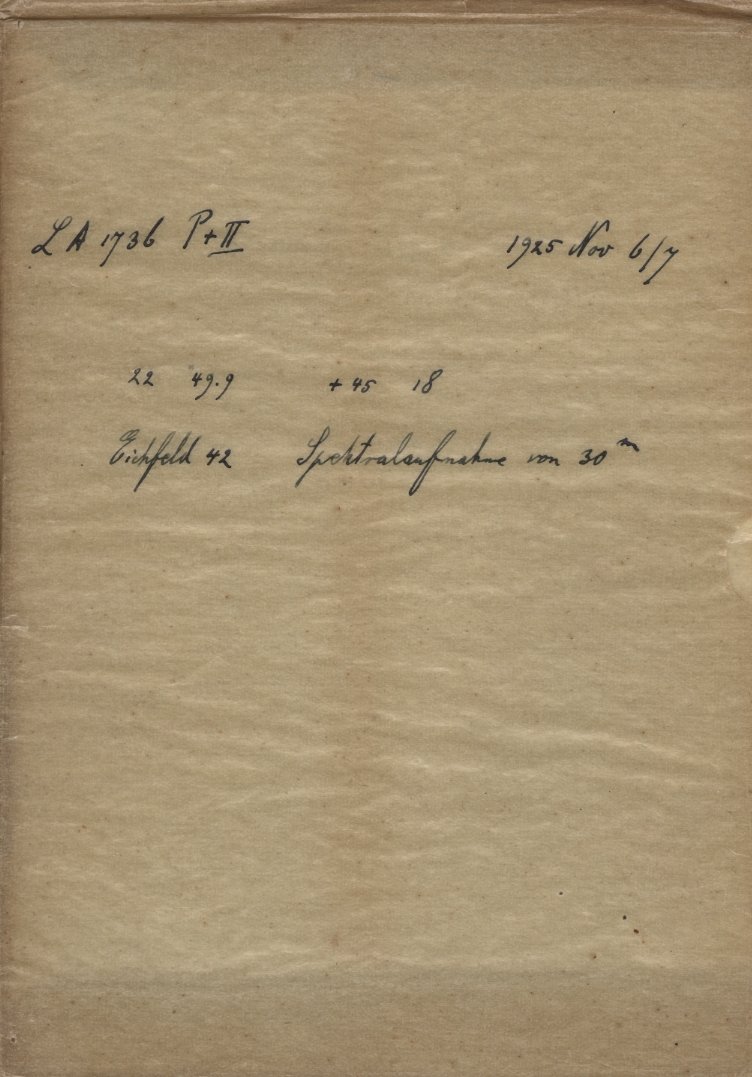 LA 1736 P+II 1925 Nov 6/7
22 49.9 +45 18
Eichfeld 42 Spektralaufnahme von 30m